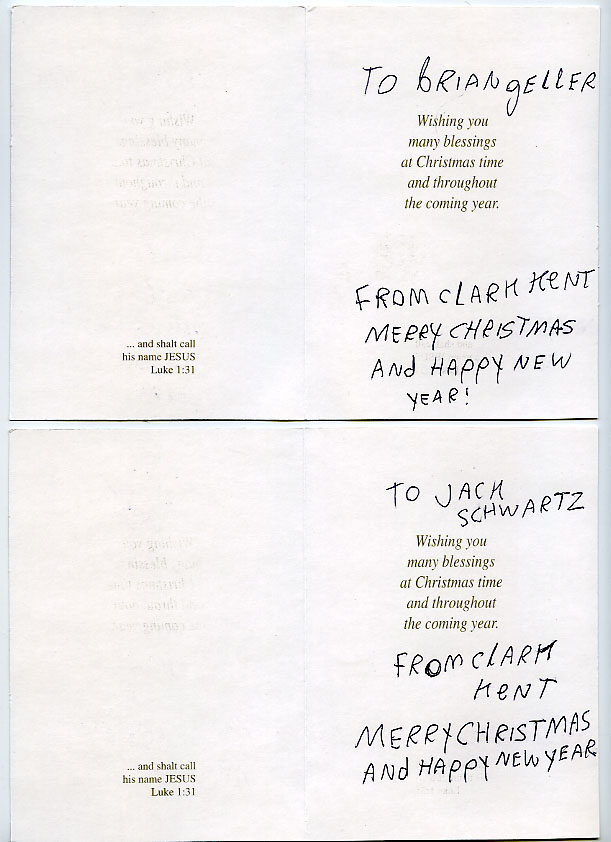 ... and shalt call
his name JESUS
Luke 1:31
TO BRIAN GELLER
Wishing you
many blessings
at Christmas time
and throughout
the coming year.
FROM CLARK KENT
MERRY CHRISTMAS
AND HAPPY NEW
YEAR!
... and shalt call
his name JESUS
Luke 1:31
TO JACK
SCHWARTZ
Wishing you
many blessings
at Christmas time
and throughout
the coming year.
FROM CLARK
KENT
MERRY CHRISTMAS
AND HAPPY NEW YEAR